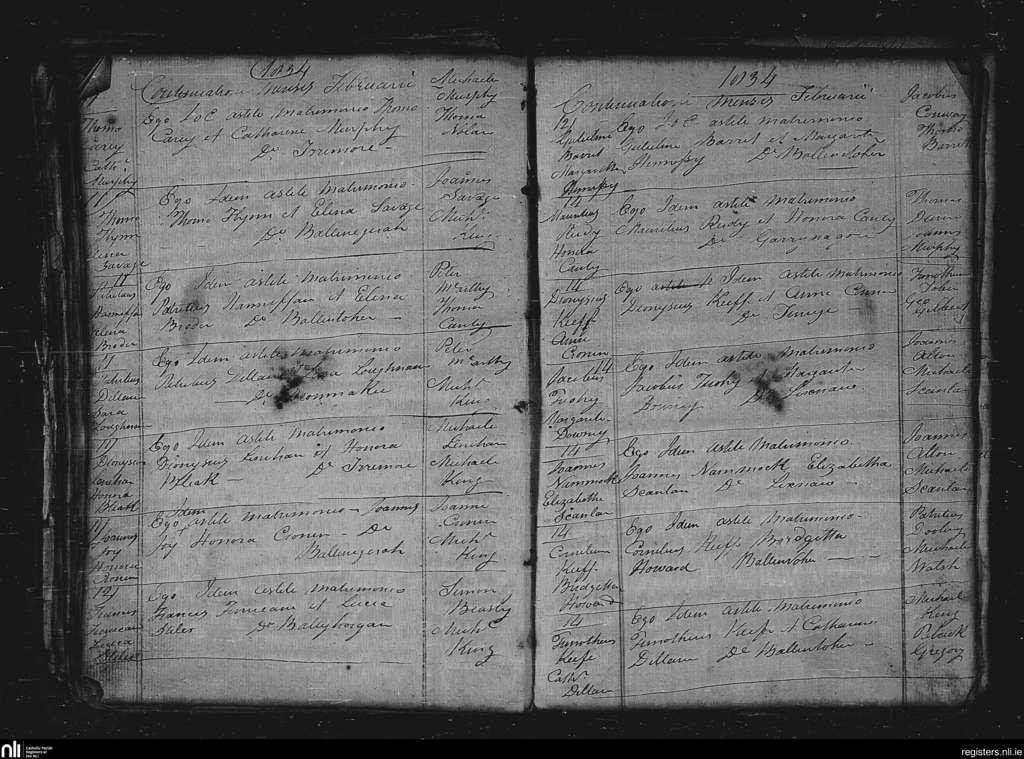 1834
Continuatio Mensis Februarii
Thomo
Carey
Cathe
Murphy
Ego JoC astite Matrimonio Thomo
Carey et Catharine Murphy
De Tremore —
Michaele
Murphy
Thoma
Nolan
Thomo
Flynn
Elena
Savage
Ego Idem astite Matrimonio
Thomo Flynn et Elena Savage
De Ballenegerah
Joannes
Savage
Michl
King
11
Elena
Broder
Ego Idem astite Matrimonio
et Elena
Broder De Ballentoher —
Peter
McCarthy
Thomo
Cauty
11
Dillane
Sara
Loughnane
Ego Idem astite Matrimonio
Dillane Loughnane
De
Peter
McCarthy
Michl
King
11
Dionyseus
Lenehan
Honora
Bleak
Ego Idem astite Matrimonio
Dionyseus Lenehan et Honora
Bleak — De Tremore
Michaele
Lenehan
Michaele
King
11
Joannes
Joy
Honora
Cronen
Idem
Ego astite Matrimonio — Joannes
Joy et Honora Cronen — De
Ballenegerah
Joanne
Cronen
Michl
King
12
Ego Idem astite Matrimonio
Frances et Lucea
Stiles De Ballyhorgan
Simon
Beasly
Michl
King
1834
Continuatio Mensis Februarii
12
Gulielmi
Barret
Margaretta
Hennessy
Ego JoC astite Matrimonio
Gulielme Barret et Margareta
Hennessy De Ballentoher
Jacobus
Conway
Thomo
Barrett
14
Mauritius
Reidy
Honora
Cauty
Ego Idem astite Matrimonio
Mauritius Reidy et Honora Cauty
De Garrynagore
Thomas
Dunn
Joannes
Murphy
14
Dionyseus
Keeff
Anne
Conen
Ego Idem astite Matrimonio
Dionyseus Keeff et Anne
De
Jonathan
Geo Gilbert
14
Jacobus
Tuohy
Margareta
Downey
Ego Idem astite Matrimonio
Jacobus Tuohy et Margareta
Downey De Lixnaw
Joannes
Alton
Michaele
Scanlan
14
Joannes
Nammock
Elizabetha
Scanlan
Ego Idem astite Matrimonio
Joannes Nammock Elizabetha
Scanlan De Lixnaw —
Joannes
Alton
Michaele
Scanlan
14
Cornelius
Keeff
Bridgetta
Howard
Ego Idem astite Matrimonio
Cornelius Keeff Bridgetta
Howard Ballentoher —
Patritius
Dooling
Michaele
Walsh
14
Timotheus
Keefe
Cathe
Dillane
Ego Idem astite Matrimonio
Timotheus Keefe et Catharine
Dillane De Ballentoher —
Michael
King
Patrick
Gregory
nli
Catholic Parish
Registers at
the NLI
registers.nli.ie